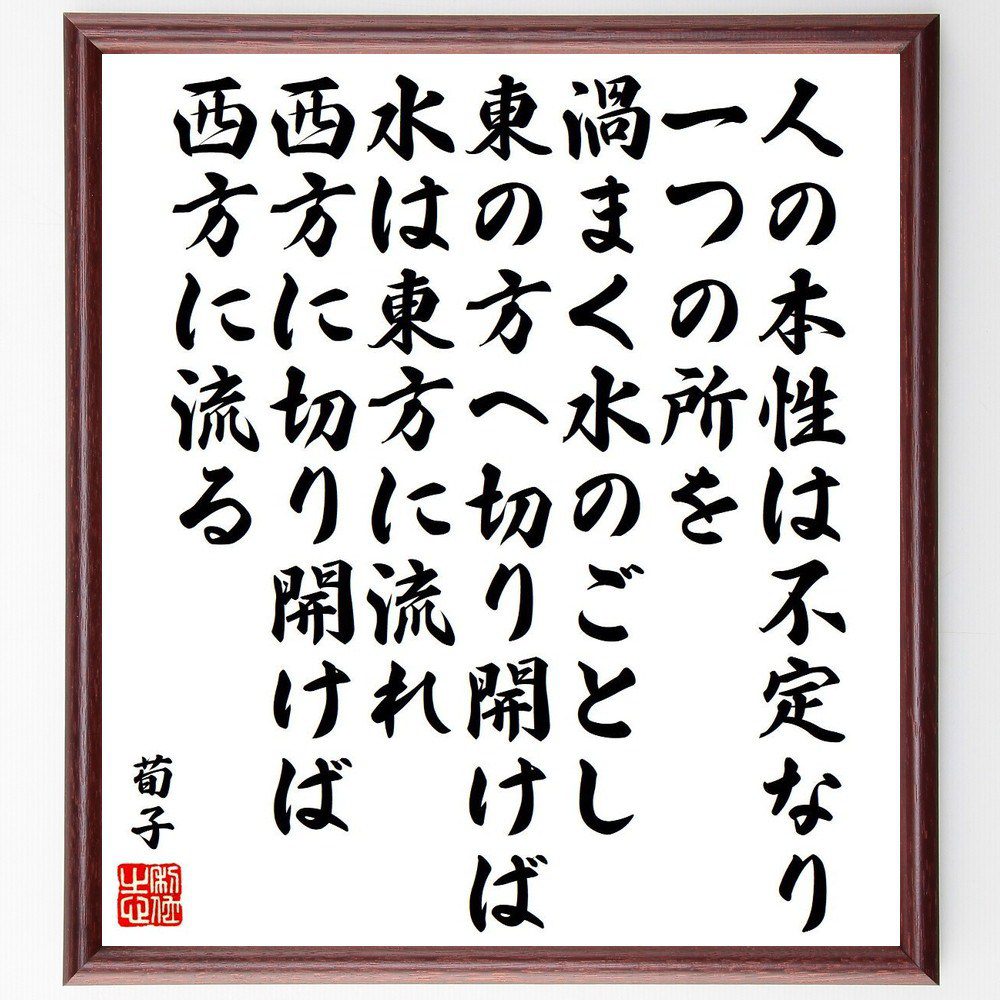 人の本性は不定なり
一つの所を
渦まく水のごとし
東の方へ切り開けば
水は東方に流れ
西方に切り開けば
西方に流る
荀子